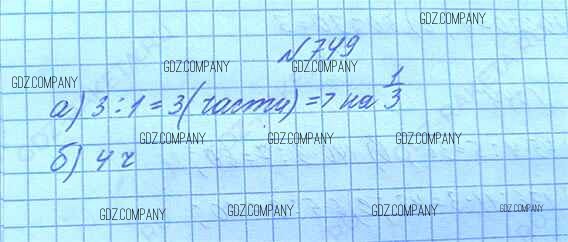 GDZ.COMPANY
№749
GDZ.COMPANY GDZ.COMPANY
GDZ.COMPANY
а) 3 : 1 = 3 (части) => на 1/3
GDZ.COMPANY GDZ.COMPANY GDZ.COMPANY
б) 4 ч
GDZ.COMPANY GDZ.COMPANY GDZ.COMPANY GDZ.COMPANY